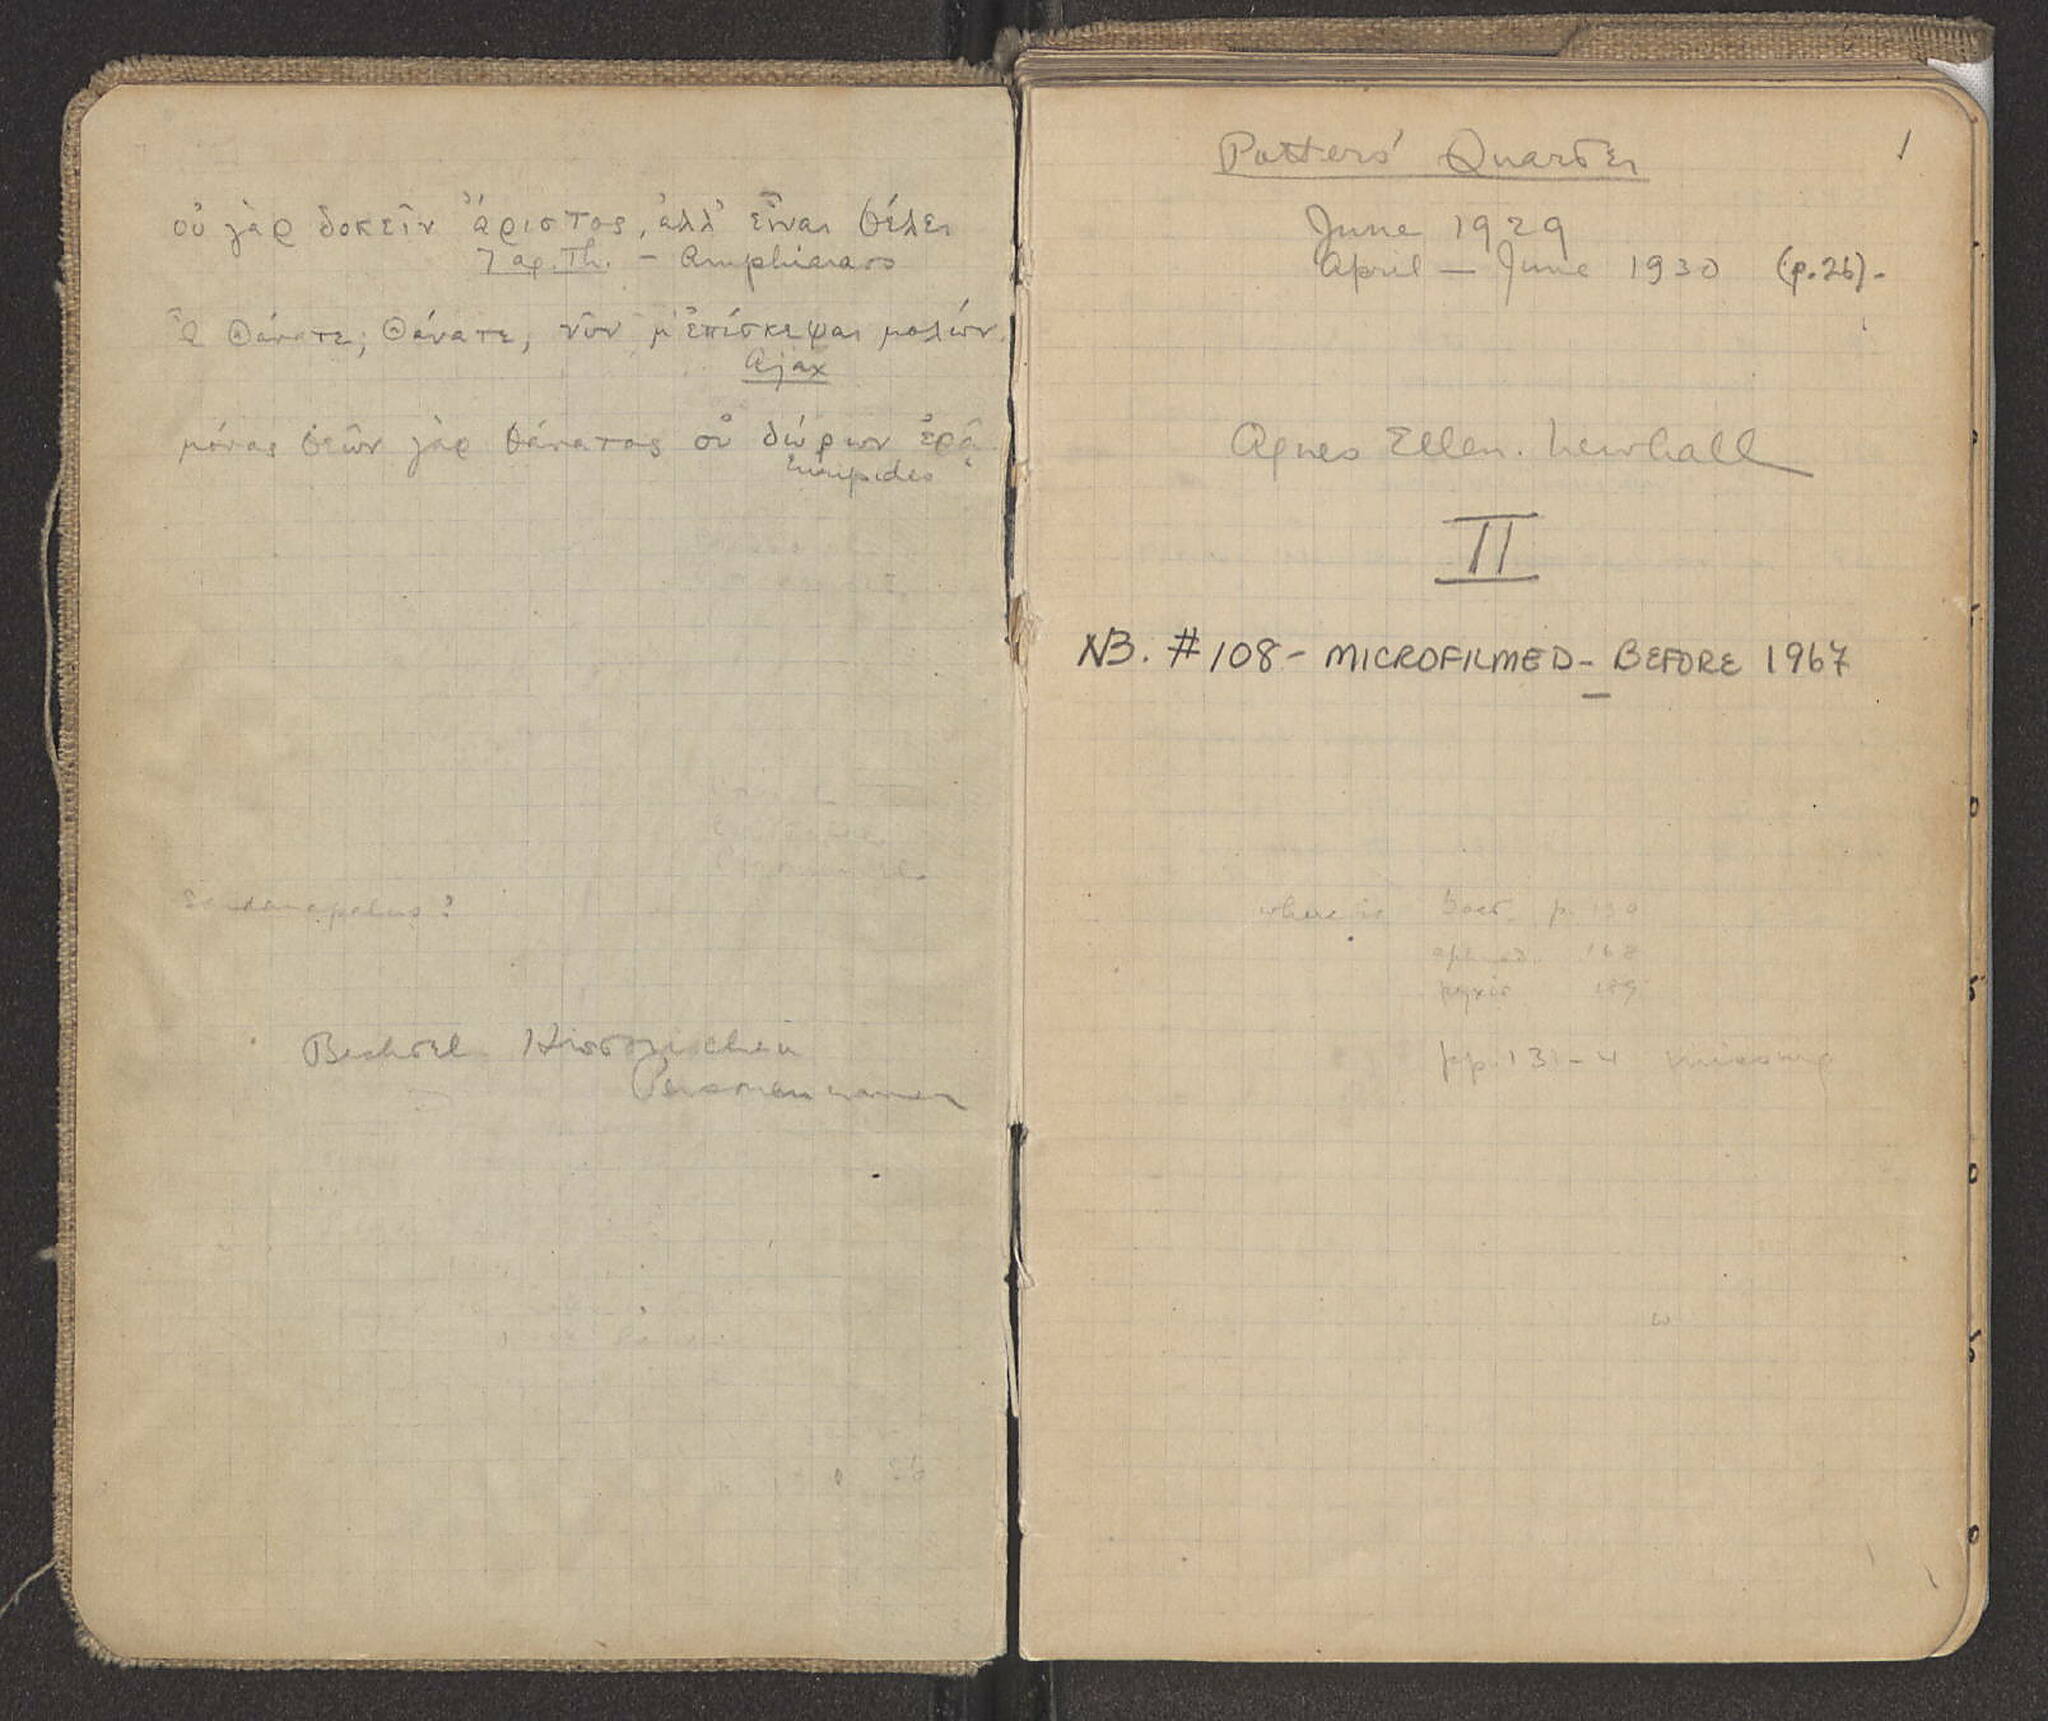 οὐ γὰρ δοκεῖν ἄριστος, ἀλλ' εἶναι θέλει
7 ag. Th. - Amphiaraos
Ὦ Θάνατε, Θάνατε, νῦν μ' ἐπίσκεψαι μολών.
Ajax
μόνος θεῶν γὰρ θάνατος οὐ δώρων ἐρᾷ
Euripides
Sardanapalus?
Bechtel Historischen
Personennamen
1
Potters' Quarter
June 1929
April - June 1930 (p. 26).
Agnes Ellen. Newhall
II
NB. #108 - MICROFILMED - BEFORE 1967
where is p. 130
168
pyxis 189
pp. 131-4 missing